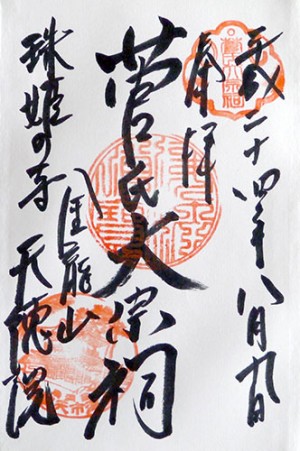 平成二十四年八月九日
奉拝
菅氏大宗祠
金龍山
珠姫の寺 天徳院